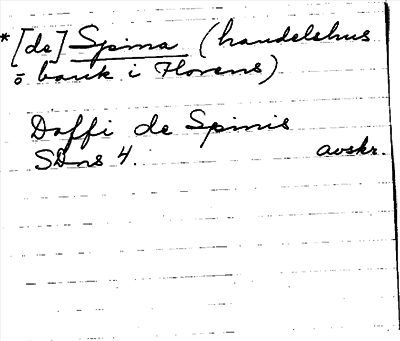 *[de] Spina (handelshus
o bank i Florens)
Doffi de Spinis
SDns 4. avskr.